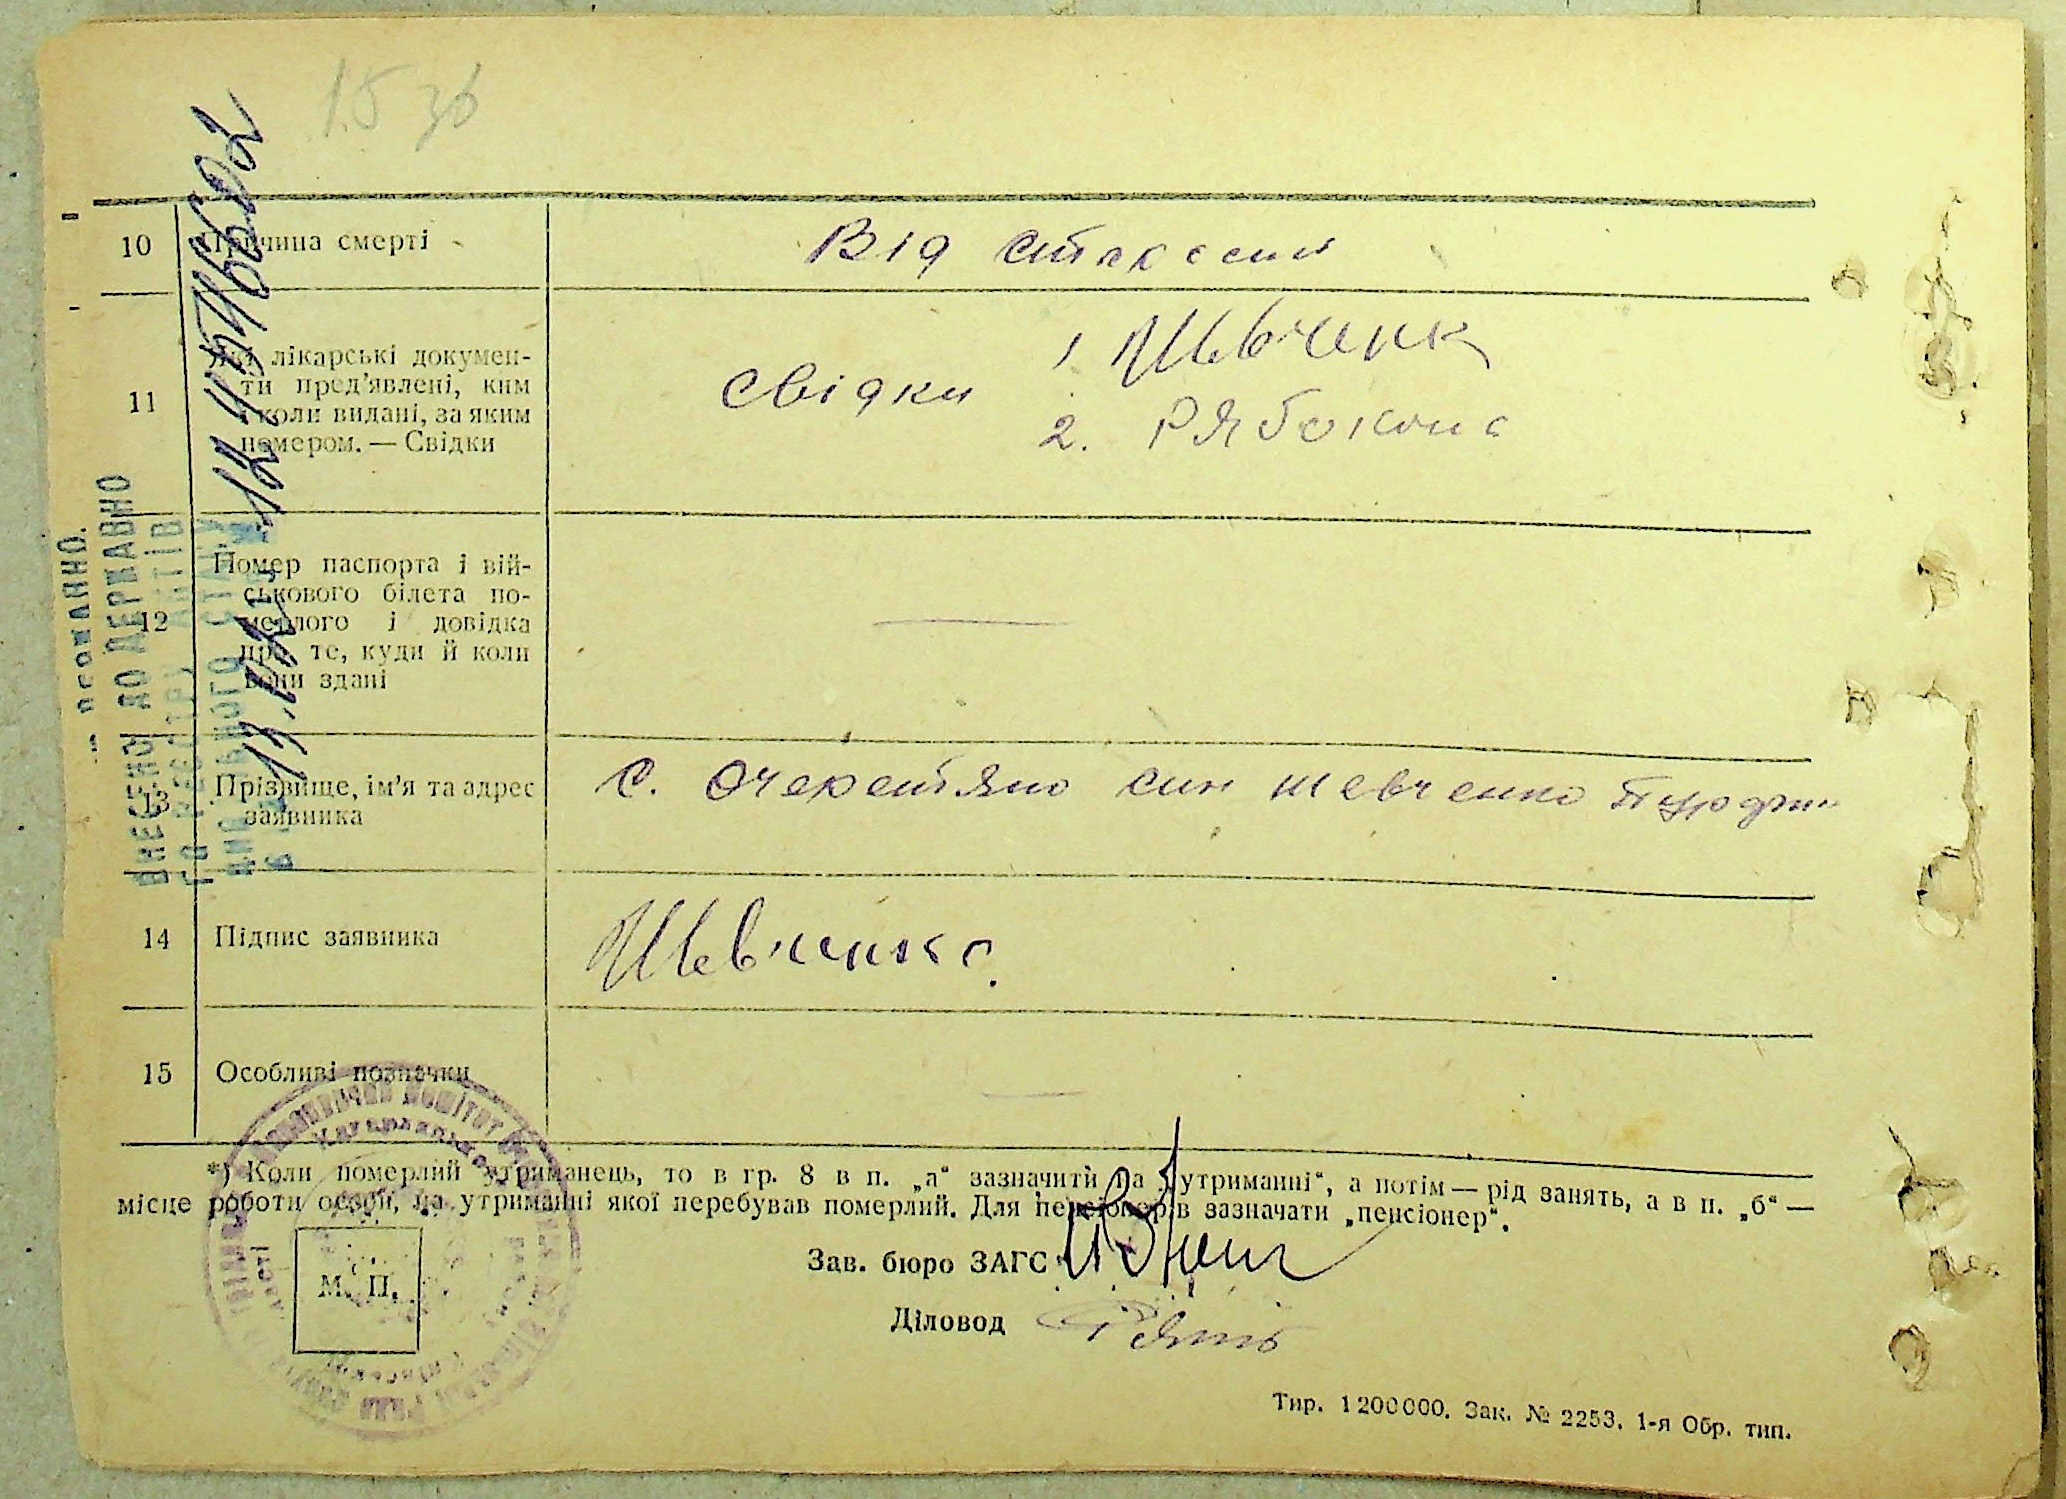 15 зв
10 Причина смерті Від старости
11 Які лікарські докумен-
ти пред'явлені, ким
і коли видані, за яким
номером. — Свідки
Свідки 1 Шевченк
2. Рябокона
12 Номер паспорта і вій-
ськового білета по-
мерлого і довідка
про те, куди й коли
вони здані
13 Прізвище, ім'я та адрес
заявника
С. Очеретяно син Шевченко
14 Підпис заявника Шевченко.
15 Особливі позначки
*) Коли померлий утриманець, то в гр. 8 в п. „а“ зазначити на „утриманні“, а потім — рід занять, а в п. „б“ —
місце роботи особи, на утриманні якої перебував померлий. Для пенсіонерів зазначати „пенсіонер“.
Зав. бюро ЗАГС
Діловод
М. П.
Тир. 1200000. Зак. № 2253. 1-я Обр. тип.
ВНЕСЕНО ДО ДЕРЖАВНО
ГО РЕЄСТРУ АКТІВ
ЦИВІЛЬНОГО СТАНУ